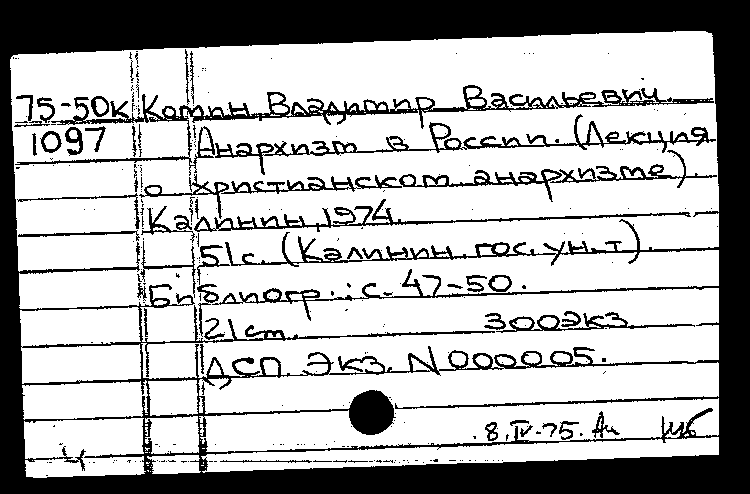 75-50к Комин, Владимир Васильевич
1097 Анархизм в России. (Лекция
о христианском анархизме).
Калинин, 1974.
51с. (Калинин. гос. ун-т).
Библиогр.: с. 47-50.
21см. 300экз.
ДСП. Экз. N000005.
8.IV-75.